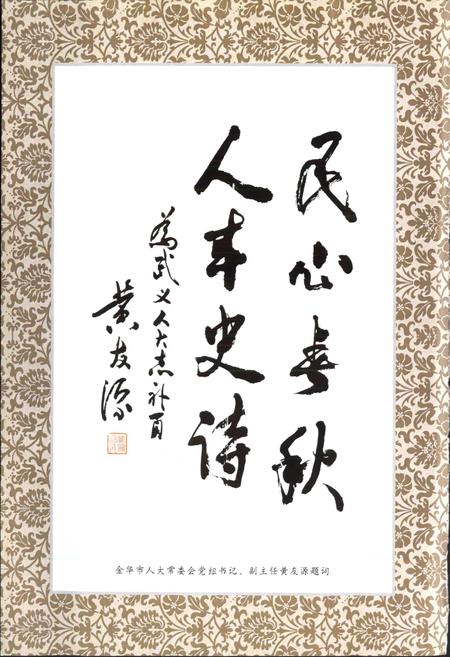 民心春秋
人本史诗
为武义人大志补页
黄友源
金华市人大常委会党组书记、副主任黄友源题词